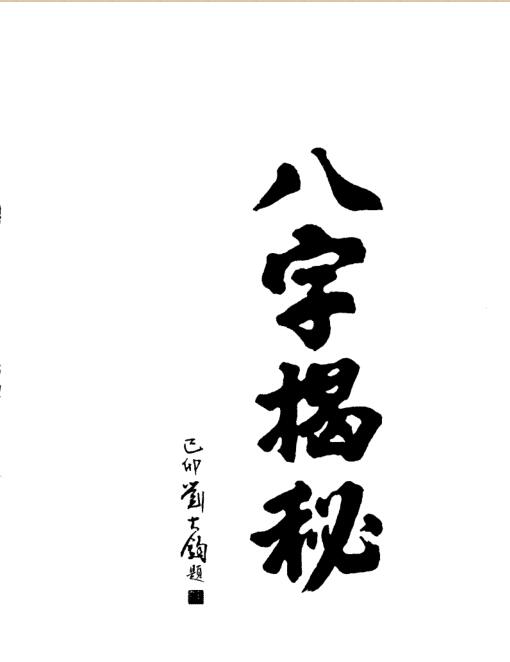 八字揭秘
己卯劉大鈞題